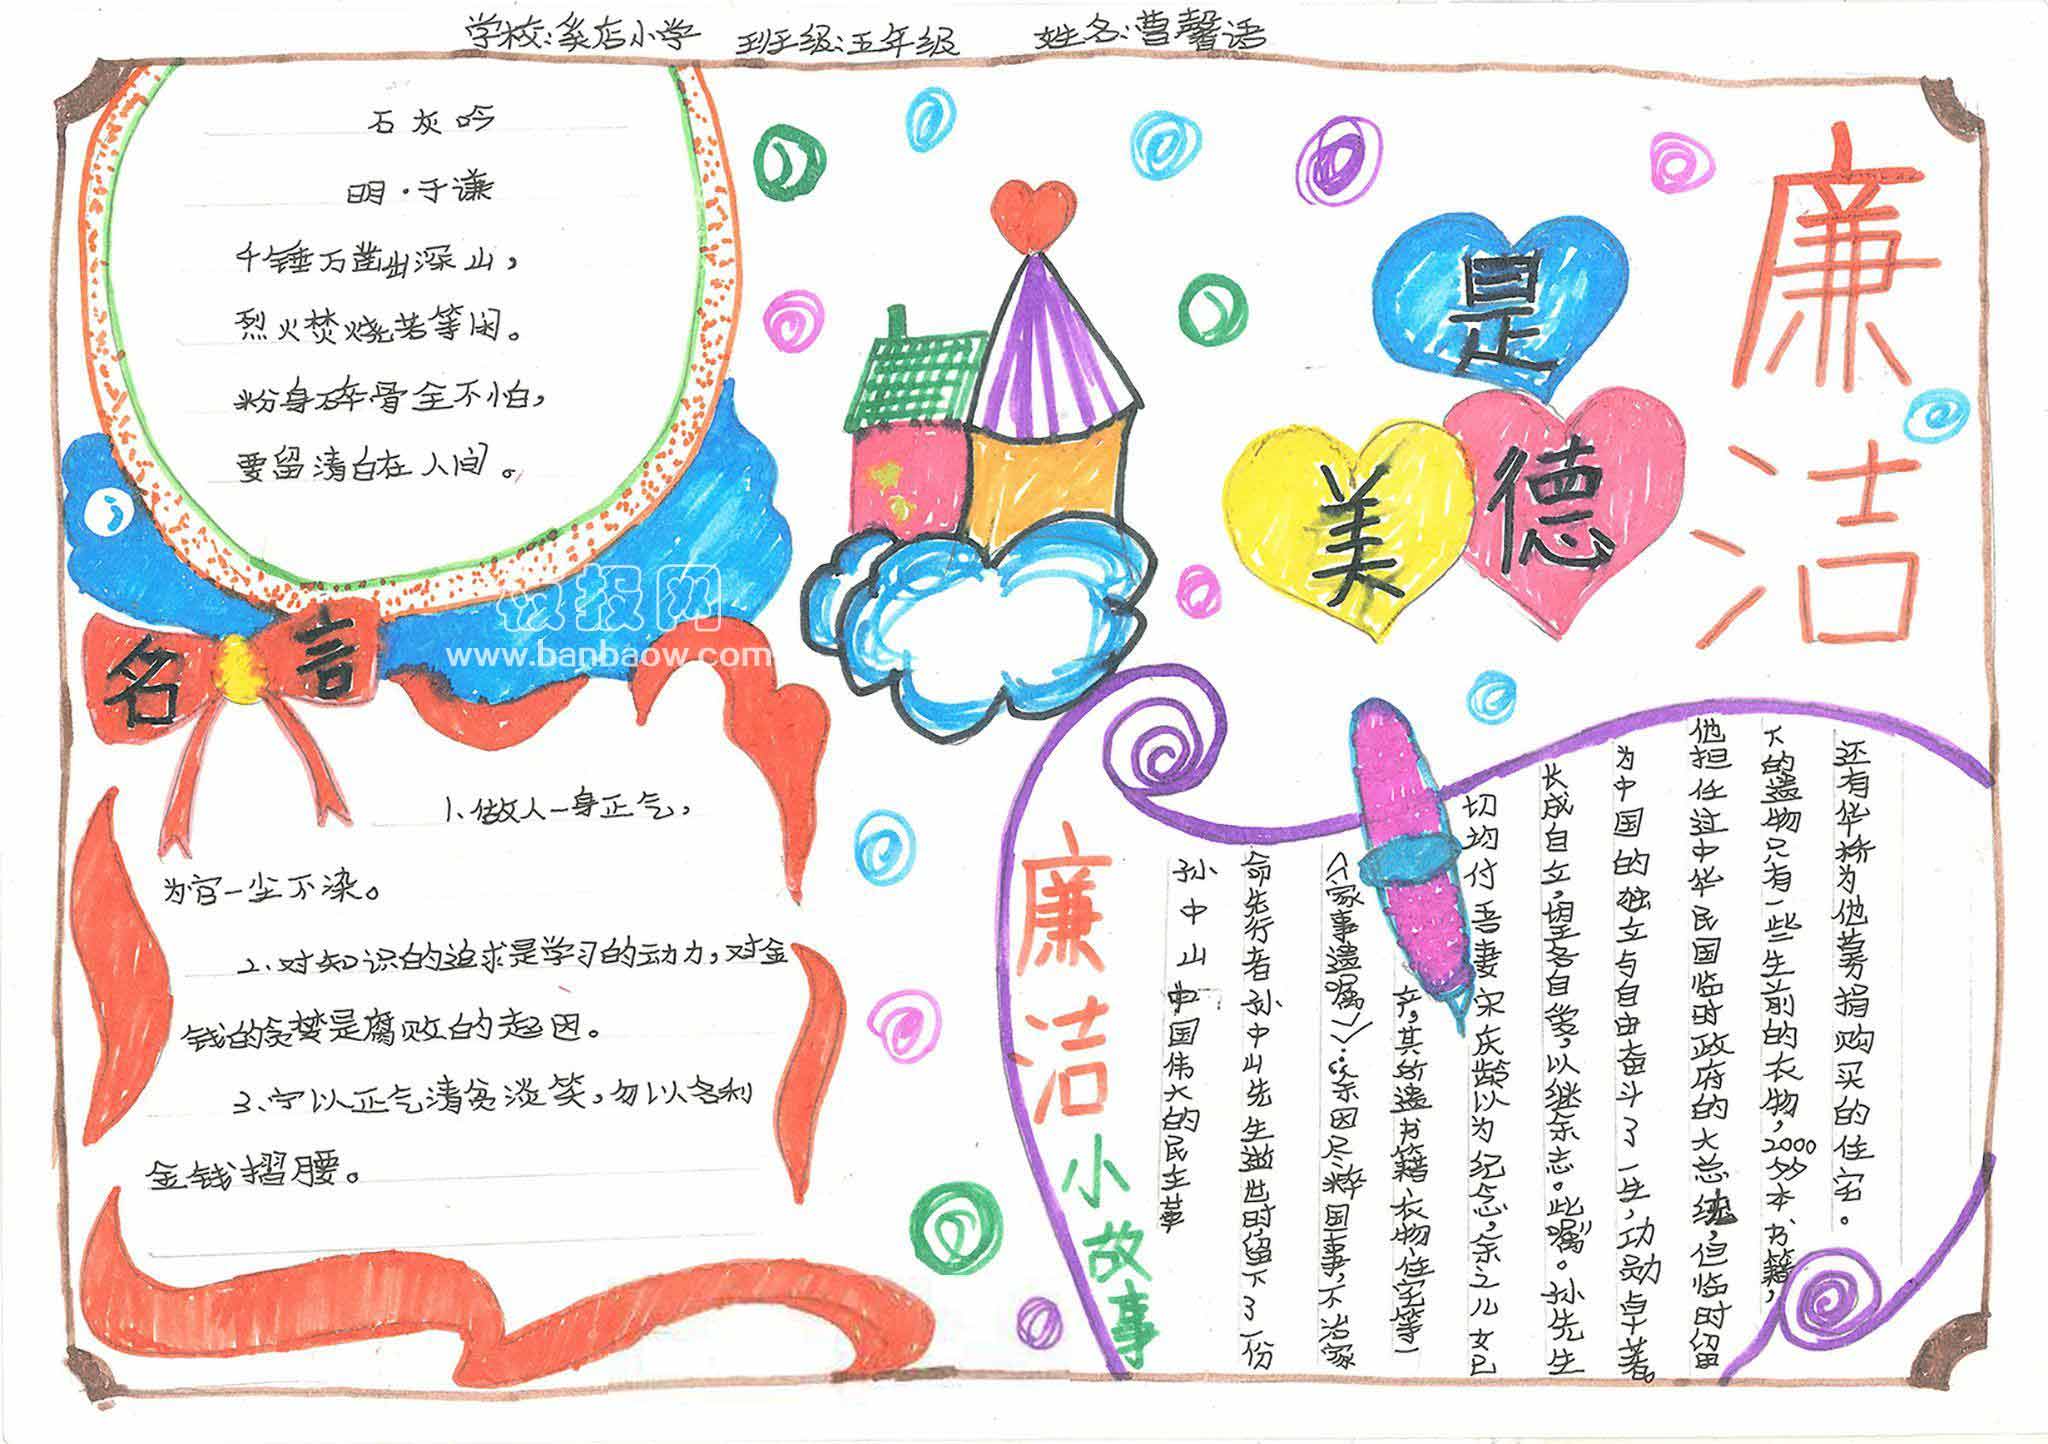 学校:彖店小学 班级:五年级 姓名:曹馨语
石灰吟
明·于谦
千锤万凿出深山,
烈火焚烧若等闲。
粉身碎骨全不怕,
要留清白在人间。
廉洁
是
美德
名言
1、做人一身正气,
为官一尘不染。
2、对知识的追求是学习的动力,对金
钱的贪婪是腐败的起因。
3、宁以正气清贫淡笑,勿以名利
金钱摺腰。
廉洁小故事
孙中山中国伟大的民主革
命先行者孙中山先生逝世时留下了一份
《家事遗嘱》:“余因尽粹国事,不治家
产,其所遗书籍、衣物、住宅等一
切均付吾妻宋庆龄以为纪念,余之儿女已
长成自立,望各自爱,以继余志。此嘱”。孙先生
为中国的独立与自由奋斗了一生,功勋卓著。
他担任过中华民国临时政府的大总统,但临时留
下的遗物只有一些生前的衣物,2000多本书籍,
还有华桥为他募捐购买的住宅。
做报网
www.banbaow.com